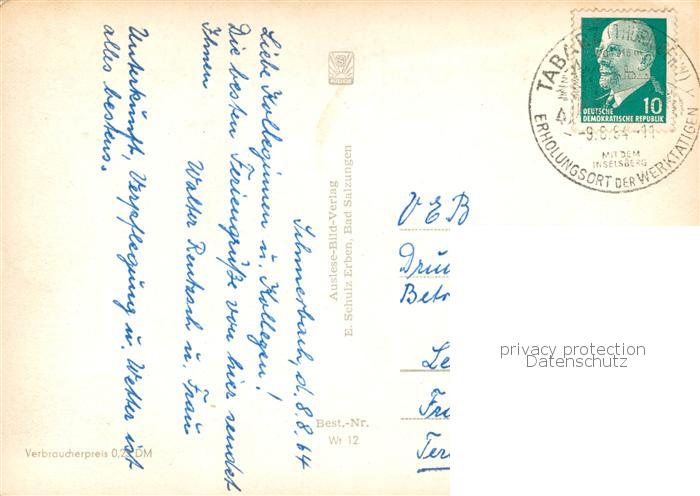 Schmerbach, d. 8.8.64
Liebe Kolleginnen u. Kollegen!
Die besten Feriengrüße von hier sendet
Ihnen
Walter Rentzsch u. Frau
Unterkunft, Verpflegung u. Wetter ist
alles bestens.
Auslese-Bild-Verlag
E. Schulz Erben, Bad Salzungen
Best.-Nr.
Wt 12
Verbraucherpreis 0,25 DM
TABARZ (THÜR WALD)
-9.8.64-11
MIT DEM
INSELSBERG
ERHOLUNGSORT DER WERKTÄTIGEN
10
DEUTSCHE
DEMOKRATISCHE REPUBLIK
VEB
Druc
Betr
Le
Fra
Ter
privacy protection
Datenschutz